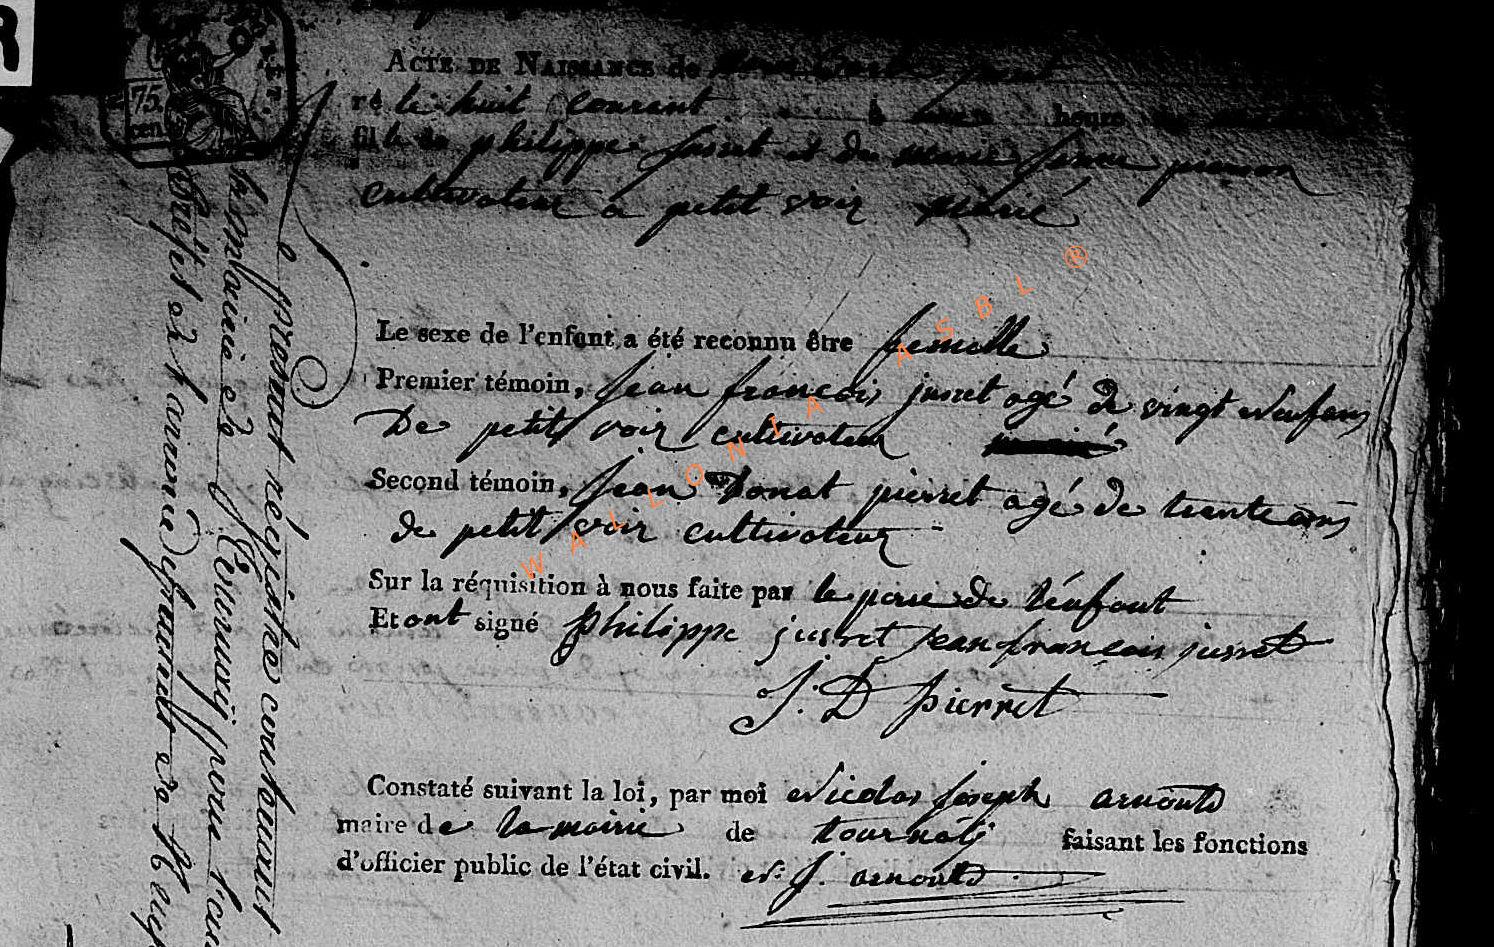 R
75
cen.
ACTE DE NAISSANCE de Marie jusret
né le huit courant à heure
fille de philippe jusret et de marie jeanne pierson
cultivateur a petit voir marié
Le sexe de l'enfant a été reconnu être femelle
Premier témoin, jean françois jusret agé de vingt neuf ans
De petit voir cultivateur
Second témoin, jean Donat pierret agé de trente ans
de petit voir cultivateur
Sur la réquisition à nous faite par le pere de l'enfant
Et ont signé philippe jusret jean françois jusret
J. D pierret
Constaté suivant la loi, par moi Nicolas joseph arnould
maire de la mairie de tournay faisant les fonctions
d'officier public de l'état civil. N. J. arnould
Le present registre contenant
la mairie de Tournaÿ pour
et l'année
WALLONIA ASBL ®